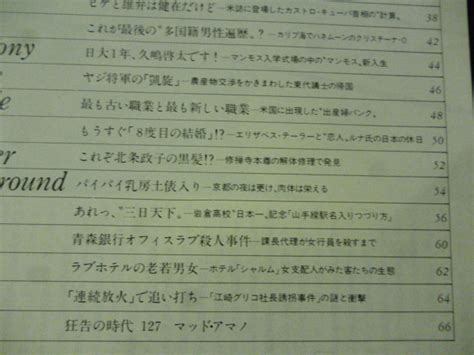 ヒゲと雄弁は健在だけど—米誌に登場したカストロ・キューバ首相の"計算„ 38
これが最後の"多国籍男性遍歴„?—カリブ海でハネムーンのクリスチーナ・O 42
ony
日大1年、久嶋啓太です!—マンモス入学式場の中の"マンモス„新入生 44
ヤジ将軍の「凱旋」—農産物交渉をかきまわした東代議士の帰国 46
最も古い職業と最も新しい職業—米国に出現した"出産婦バンク„ 48
もうすぐ「8度目の結婚」!?—エリザベス・テーラーと"恋人„ルナ氏の日本の休日 50
er
これぞ北条政子の黒髪!?—修禅寺本尊の解体修理で発見 52
round
パイパイ乳房土俵入り—京都の夜は更け、肉体は栄える 54
あれっ、"三日天下„—岩倉高校"日本一„記念「山手線駅名入りつづり方」 56
青森銀行オフィスラブ殺人事件—課長代理が女行員を殺すまで 60
ラブホテルの老若男女—ホテル「シャルム」女支配人がみた客たちの生態 62
「連続放火」で追い打ち—「江崎グリコ社長誘拐事件」の謎と衝撃 64
狂告の時代 127 マッド・アマノ 66